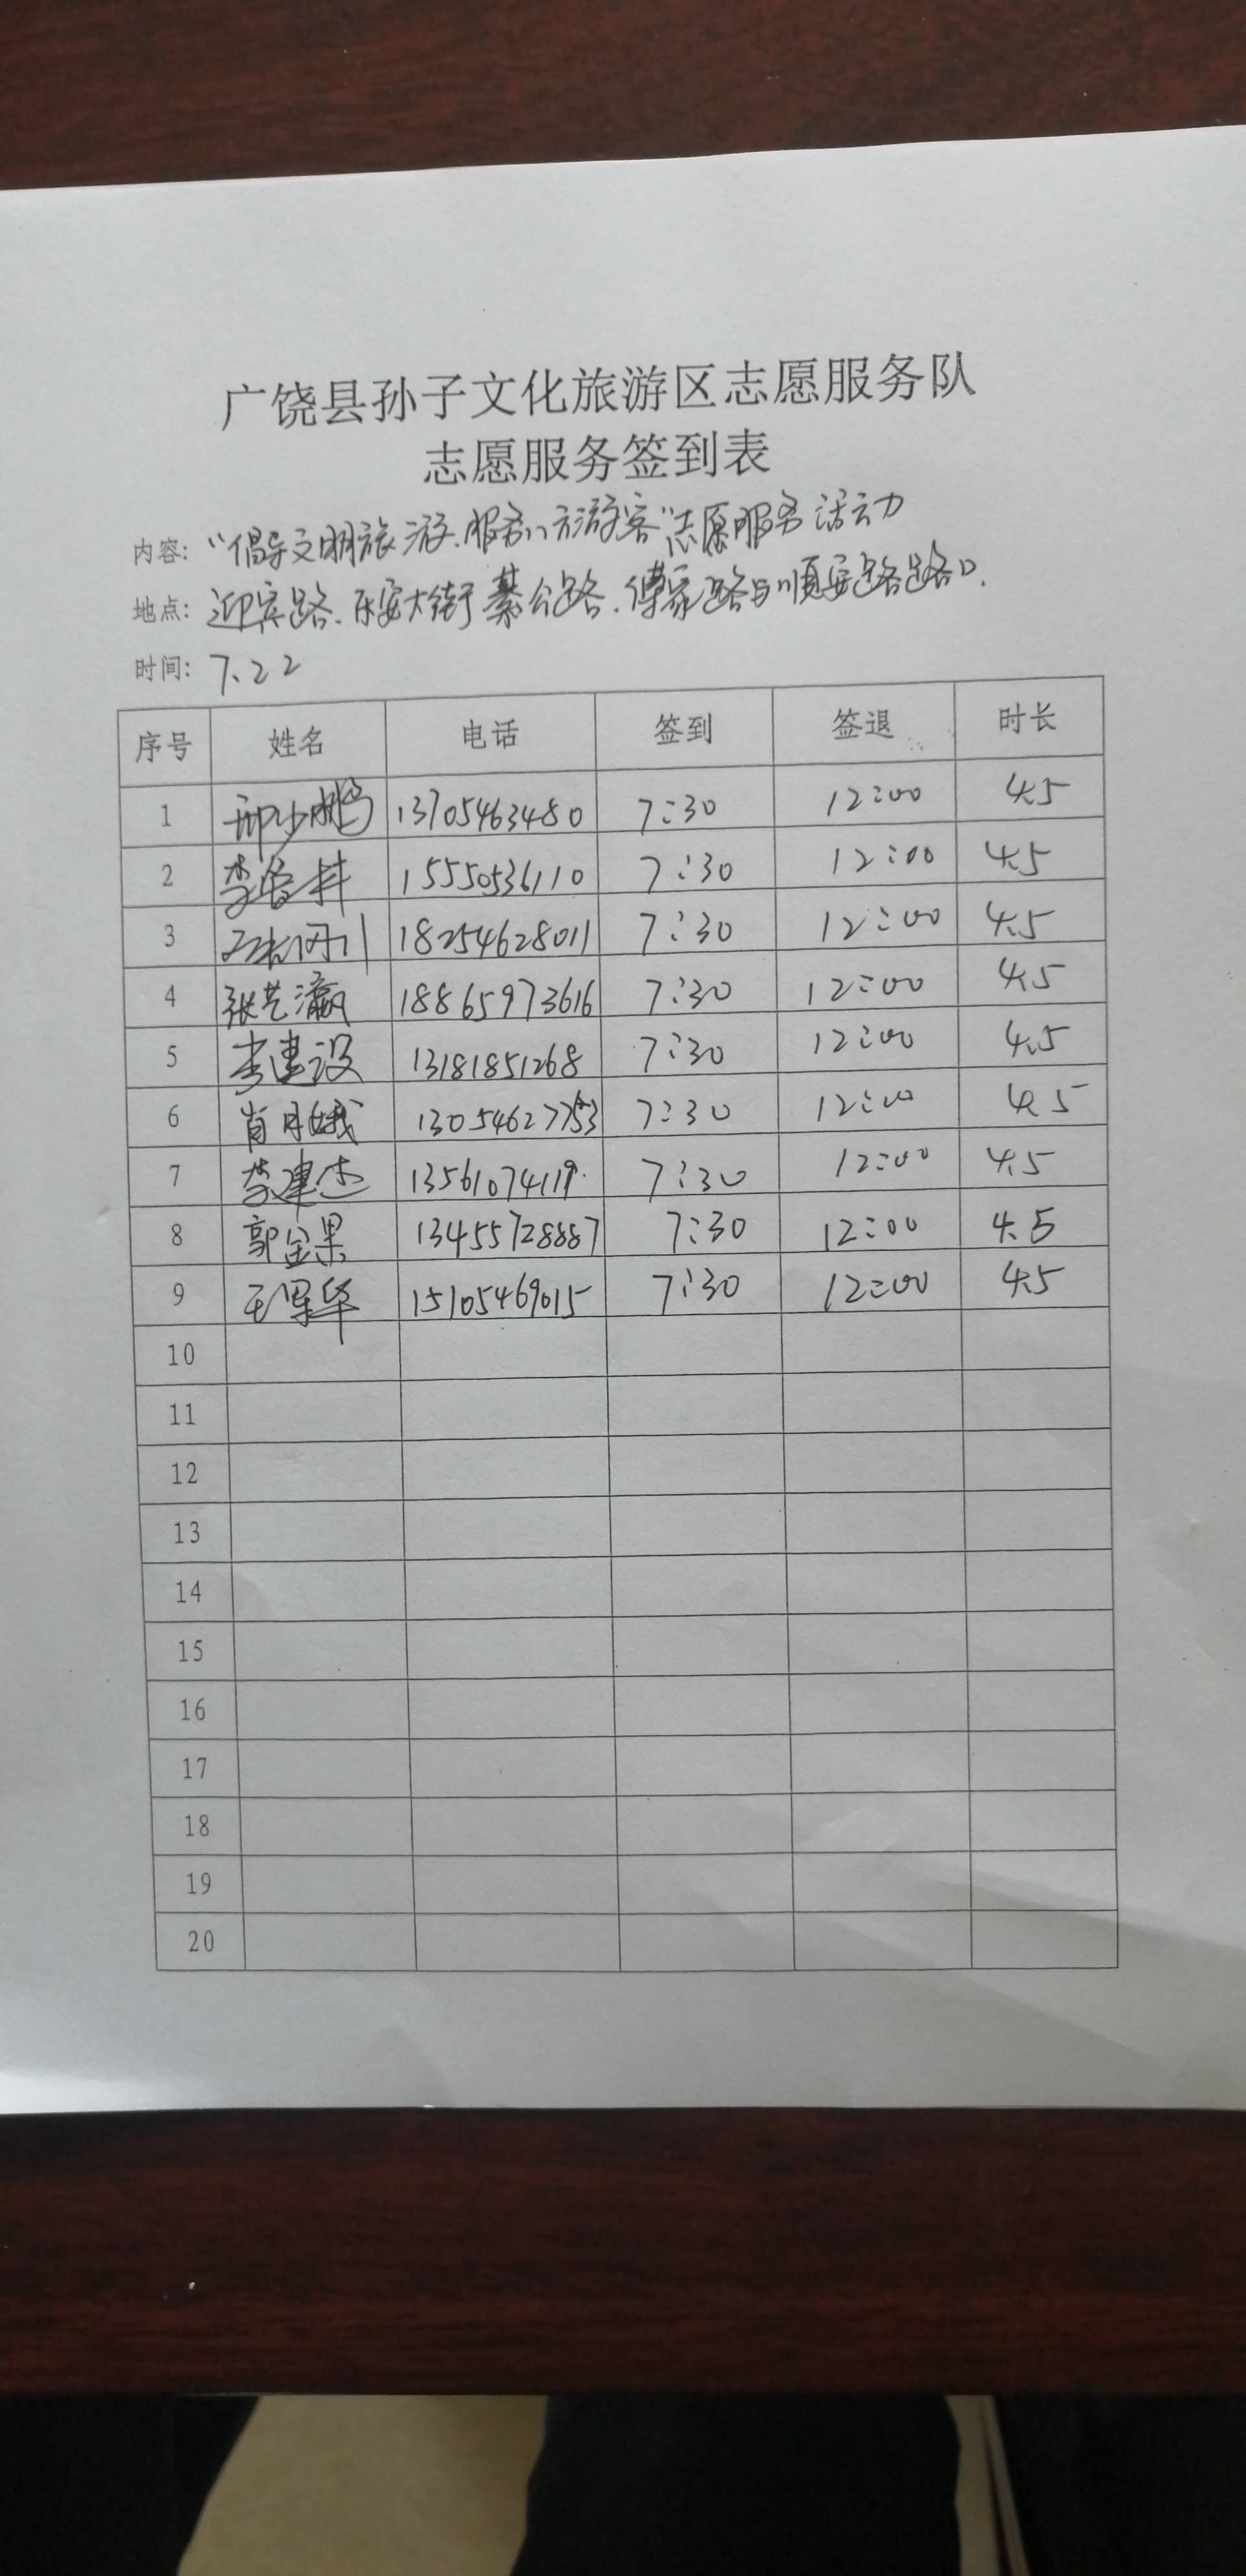 广饶县孙子文化旅游区志愿服务队
志愿服务签到表
内容: "倡导文明旅游.服务八方游客"志愿服务活动
地点: 迎宾路.乐安大街 綦公路.傅家路与顺安路路口.
时间: 7.22
序号 姓名 电话 签到 签退 时长
1 邢少鹏 13705463480 7:30 12:00 4.5
2 李 15550536110 7:30 12:00 4.5
3 18254628011 7:30 12:00 4.5
4 张艺瀛 18865973616 7:30 12:00 4.5
5 李建设 13181851268 7:30 12:00 4.5
6 肖月娥 13054627753 7:30 12:00 4.5
7 李建杰 13561074119 7:30 12:00 4.5
8 郭金果 13455728887 7:30 12:00 4.5
9 王翠华 15105469015 7:30 12:00 4.5
10
11
12
13
14
15
16
17
18
19
20